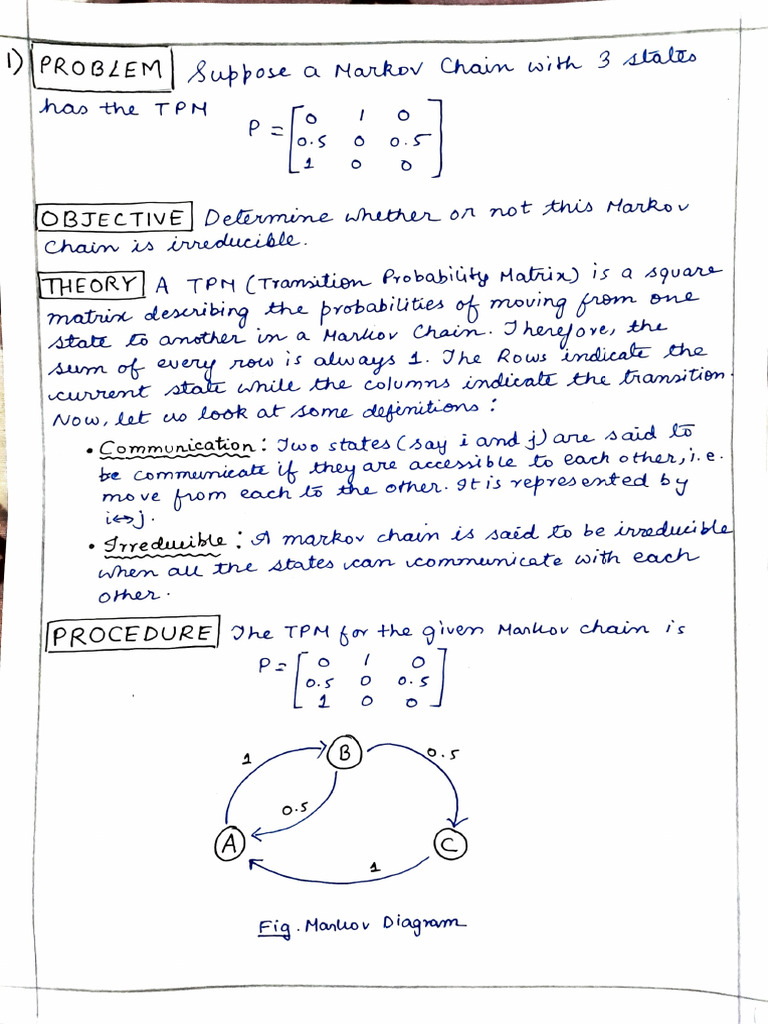 1) PROBLEM Suppose a Markov Chain with 3 states
has the TPM
P = [ 0 1 0
0.5 0 0.5
1 0 0 ]
OBJECTIVE Determine whether or not this Markov
Chain is irreducible.
THEORY A TPM (Transition Probability Matrix) is a square
matrix describing the probabilities of moving from one
state to another in a Markov Chain. Therefore, the
sum of every row is always 1. The Rows indicate the
current state while the columns indicate the transition.
Now, let us look at some definitions :
• Communication : Two states (say i and j) are said to
be communicate if they are accessible to each other, i.e.
move from each to the other. It is represented by
i↔j.
• Irreducible : A markov chain is said to be irreducible
when all the states can communicate with each
other.
PROCEDURE The TPM for the given Markov chain is
P = [ 0 1 0
0.5 0 0.5
1 0 0 ]
1 B 0.5
0.5
A C
1
Fig. Markov Diagram